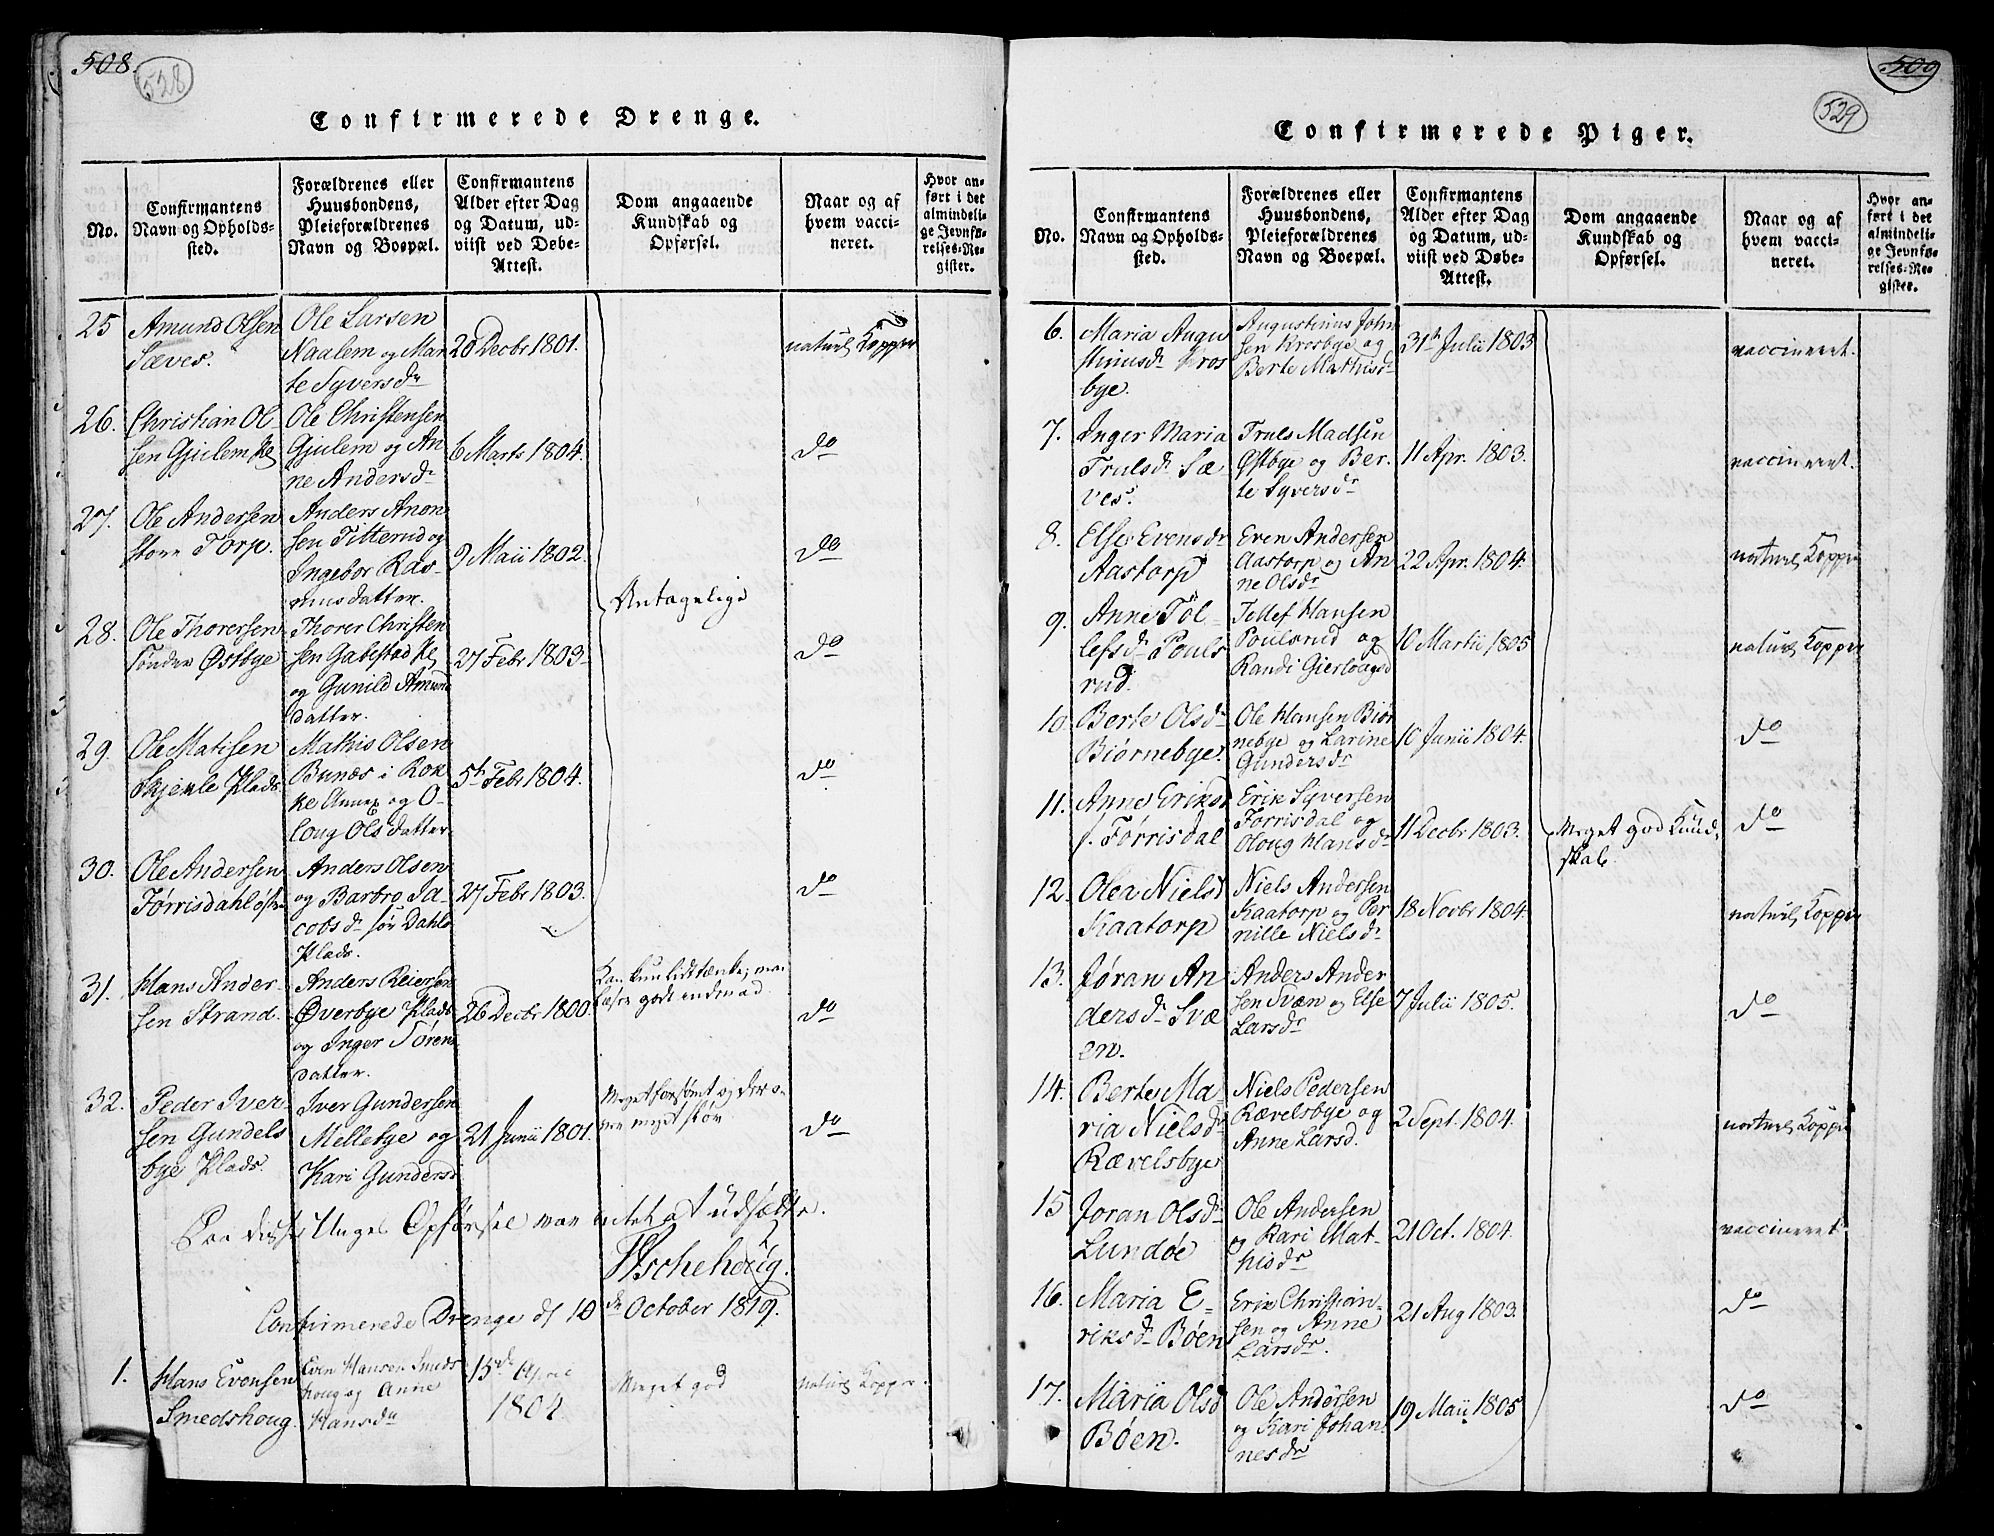 508.
528
Confirmerede Drenge.
No.
Confirmantens
Navn og Opholds-
sted.
Forældrenes eller
Huusbondens,
Pleieforældrenes
Navn og Boepæl.
Confirmantens
Alder efter Dag
og Datum, ud-
viist ved Døbe-
Attest.
Dom angaaende
Kundskab og
Opførsel.
Naar og af
hvem vacci-
neret.
Hvor an-
ført i det
almindeli-
ge Jevnfø-
relses-Re-
gister.
25
Amund Olsen
Sæves.
Ole Larsen
Naalem og Mar
te Syversdr
20 Decbr 1801.
naturl Kopper
26.
Christian Ol
sen Gjulem
Ole Christensen
Gjulem og An
ne Andersdr
6 Marts 1804.
do
27.
Ole Andersen
store Torp.
Anders Anon
sen Titterud og
Ingebor Ras-
musdatter.
9 Maii 1802.
do
Antagelige
28.
Ole Thorersen
Sønder Østbye
Thorer Christen
sen Gabestad
og Gunild Amund
datter.
27 Febr 1803.
do
29.
Ole Matisen
Skjekle Plads
Mathis Olsen
Bunæs i Rok
ke Annex og O-
loug Olsdatter
5te Febr 1804.
do
30.
Ole Andersen
Tørrisdahl østre
Anders Olsen
og Barbro Ja
cobsdr sør Dahls
Plads.
27 Febr 1803.
do
31.
Hans Ander-
sen Strand.
Anders Reiersen
Øverbye Plads
og Inger Sørens
datter.
26 Decbr 1800.
Kan kun lidt tænke, men
læser godt indenad.
do
32.
Peder Iver-
sen Gundels
bye Plads.
Iver Gundersen
Mellebye og
Kari Gundersd
21 Junii 1801.
Meget forsømt og der
meget sløv
do
Paa disse Unges Opførsel var intet at udsætte.
Confirmerede Drenge d 10de October 1819.
1.
Hans Evensen
Smedshoug.
Even Hansen Smeds
houg og Anne
Hansdr
15de April
1804.
Meget god
naturl Kopper.
509
529
Confirmerede Piger.
No.
Confirmantens
Navn og Opholds-
sted.
Forældrenes eller
Huusbondens,
Pleieforældrenes
Navn og Boepæl.
Confirmantens
Alder efter Dag
og Datum, ud-
viist ved Døbe-
Attest.
Dom angaaende
Kundskab og
Opførsel.
Naar og af
hvem vacci-
neret.
Hvor an-
ført i det
almindeli-
ge Jevnfø-
relses-Re-
gister.
6.
Maria Augu
stinusdr Kros
bye.
Augustinus John
sen Krosbye og
Berte Mathisdr
31te Julii 1803
vaccineret.
7.
Inger Maria
Trulsdr Sæ
ves.
Truls Madsen
Østbye og Ber-
te Syversdr
11 Apr. 1803.
vaccineret.
8.
Else Evensdr
Aastorp
Even Andersen
Aastorp og An
ne Olsdr
22 Apr. 1804.
naturl Kopper
9.
Anne Tol
lefsdr Pouls
rud.
Tollef Hansen
Poulsrud og
Randi Gierlougsd
10 Martii 1805
naturl Kopper
10.
Berte Olsdr
Biørnebye.
Ole Hansen Biør
nebye og Larine
Gundersdr
10 Junii 1804.
do
11.
Anne Eriksd
s. Tørrisdal
Erik Syversen
Tørrisdal og
Oloug Hansdr
11 Decbr 1803.
Meget god Kund-
skab.
do
12.
Olea Nielsd
Kaatorp
Niels Andersen
Kaatorp og Per
nille Nielsdr
18 Novbr 1804.
naturl Kopper
13.
Jøran An
dersdr Svæ
en.
Anders Ander
sen Svæn og Else
Larsdr
7 Julii 1805.
do
14.
Berte Ma-
ria Nielsdr
Rævelsbye
Niels Pedersen
Rævelsbye og
Anne Larsd.
2 Sept. 1804.
naturl Kopper
15
Joran Olsdr
Lundøe
Ole Andersen
og Kari Mat-
hisdr
21 Oct. 1804.
vaccineret
16.
Maria E-
riksdr Bøen
Erik Christian-
sen og Anne
Larsdr.
21 Aug 1803.
do
17.
Maria Olsd
Bøen.
Ole Andersen
og Kari Johan-
nesdr
19 Maii 1805
do